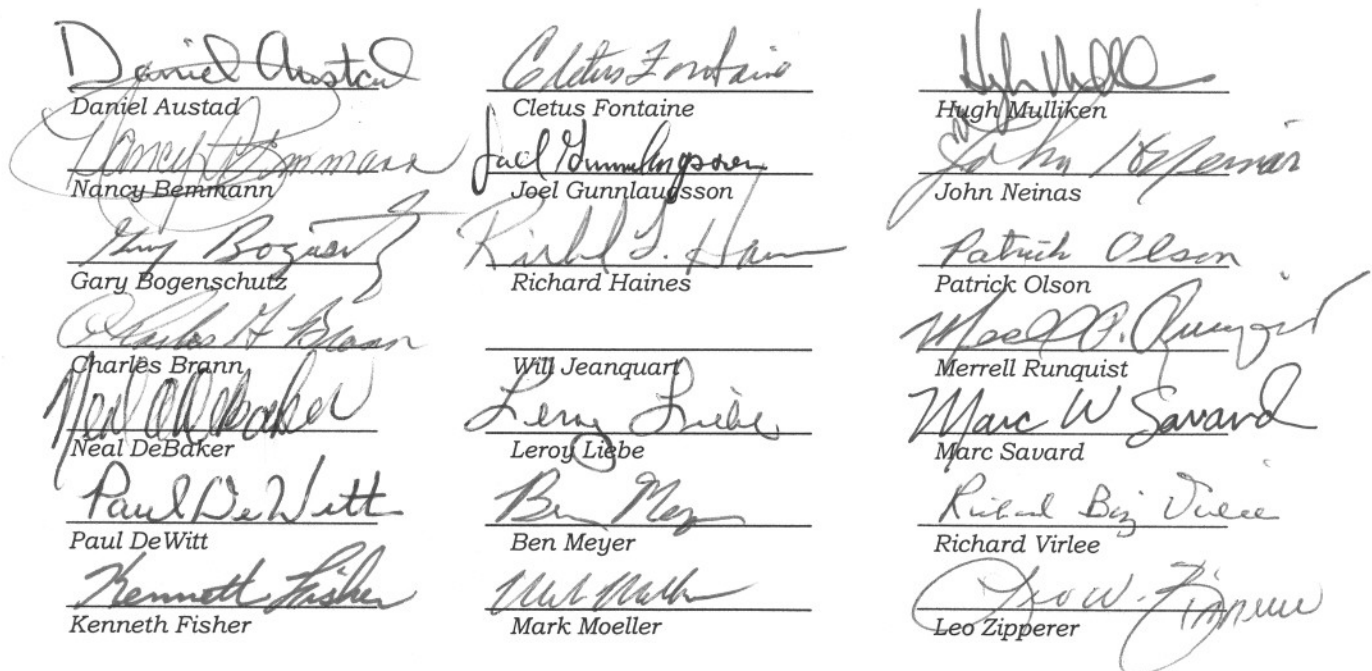 Daniel Austad
Daniel Austad
Nancy Bemmann
Nancy Bemmann
Gary
Gary Bogenschutz
Charles Brann
Neal DeBaker
Neal DeBaker
Paul DeWitt
Paul DeWitt
Kenneth Fisher
Kenneth Fisher
Cletus Fontaine
Cletus Fontaine
Joel Gunnlaugsson
Joel Gunnlaugsson
Richard Haines
Will Jeanquart
Leroy Liebe
Leroy Liebe
Ben
Ben Meyer
Mark Moeller
Hugh
Hugh Mulliken
John Neinas
John Neinas
Patrick Olson
Patrick Olson
Merrell Runquist
Marc W Savard
Marc Savard
Richard
Richard Virlee
Leo W.
Leo Zipperer